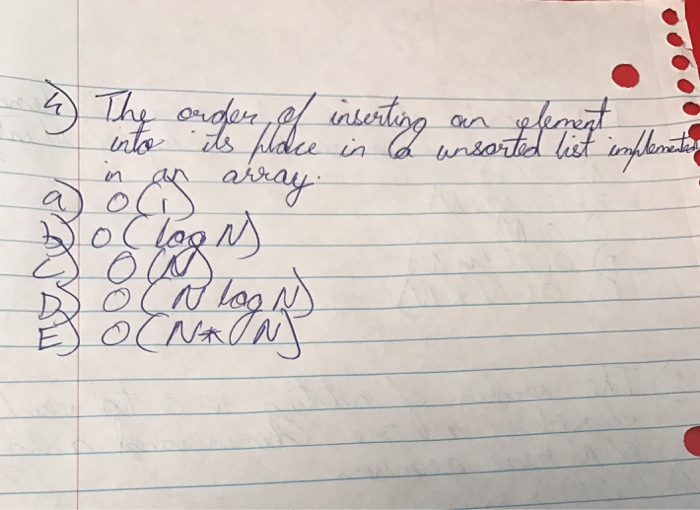 4) The order of inserting an element
into its place in a unsorted list implemented
in an array.
a) O(1)
b) O(log N)
C) O(N)
D) O(N log N)
E) O(N*N)